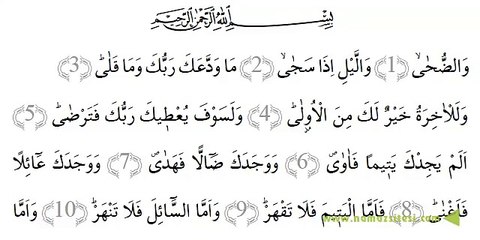 بِسْمِ اللّٰهِ الرَّحْمٰنِ الرَّحِيمِ
وَالضُّحٰىۙ (1) وَالَّيْلِ اِذَا سَجٰىۙ (2) مَا وَدَّعَكَ رَبُّكَ وَمَا قَلٰىۜ (3)
وَلَلْاٰخِرَةُ خَيْرٌ لَكَ مِنَ الْاُو۫لٰىۜ (4) وَلَسَوْفَ يُعْط۪يكَ رَبُّكَ فَتَرْضٰىۜ (5)
اَلَمْ يَجِدْكَ يَت۪يماً فَاٰوٰىۖ (6) وَوَجَدَكَ ضَٓالاًّ فَهَدٰىۖ (7) وَوَجَدَكَ عَٓائِلاً
فَاَغْنٰىۜ (8) فَاَمَّا الْيَت۪يمَ فَلَا تَقْهَرْۜ (9) وَاَمَّا السَّٓائِلَ فَلَا تَنْهَرْۜ (10) وَاَمَّا
www.namazsitesi.com